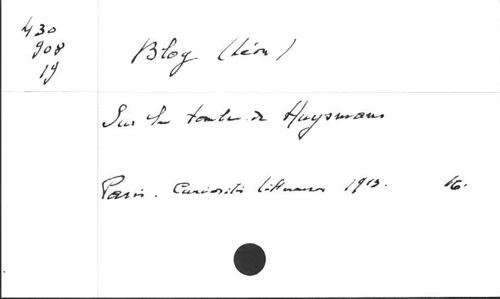 430
908
19
Bloy (Léon)
Sur la tombe de Huysmans
Paris. Curiosités littéraires 1913. 16.